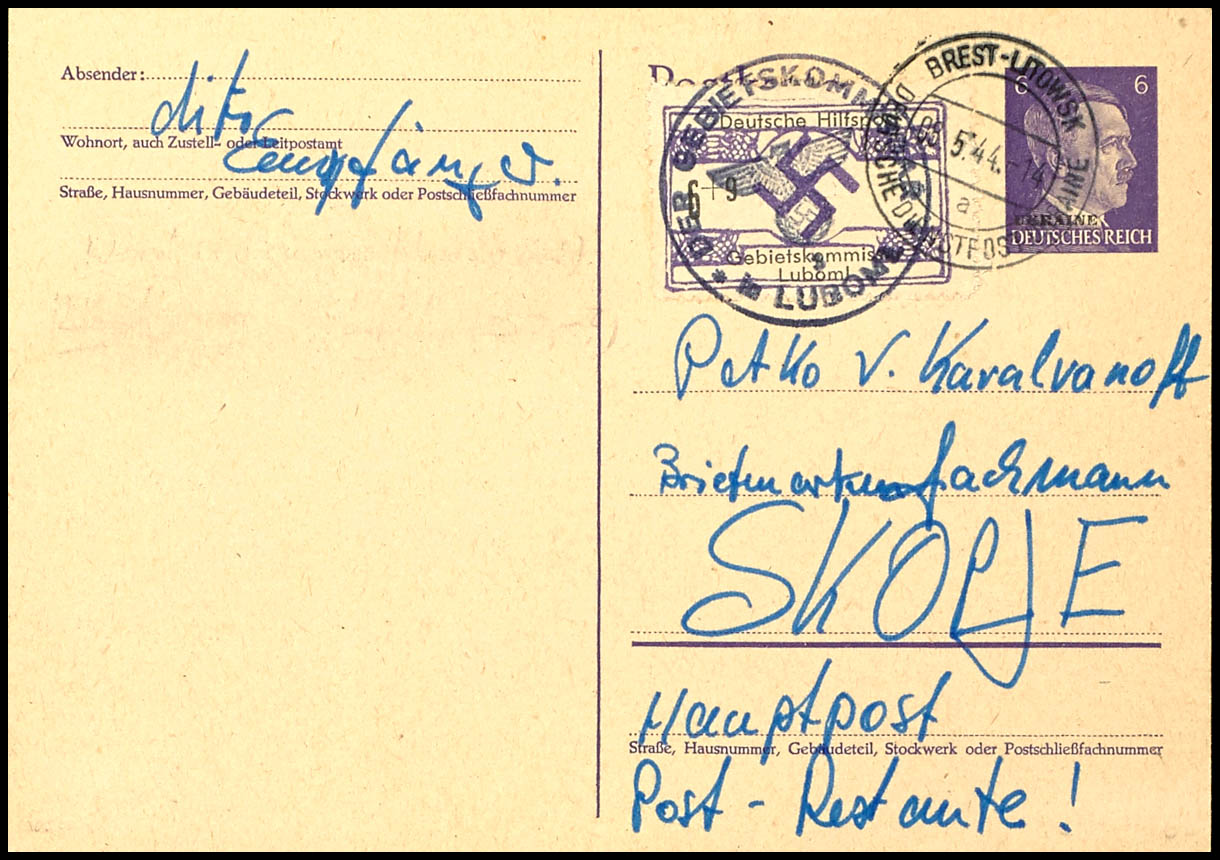 Absender:
dito
Wohnort, auch Zustell- oder Leitpostamt
Empfänger
Straße, Hausnummer, Gebäudeteil, Stockwerk oder Postschließfachnummer
DER GEBIETSKOMM
* in LUBOML
Deutsche Hilfspost
6+9
Gebietskommiss
Luboml
BREST-LITOWSK
03.5.44.-14
a
DEUTSCHE DIENSTPOST UKRAINE
6 6
UKRAINE
DEUTSCHES REICH
Petko V. Karalvanoff
Briefmarkenfachmann
SKOPJE
Hauptpost
Straße, Hausnummer, Gebäudeteil, Stockwerk oder Postschließfachnummer
Post - Restante!